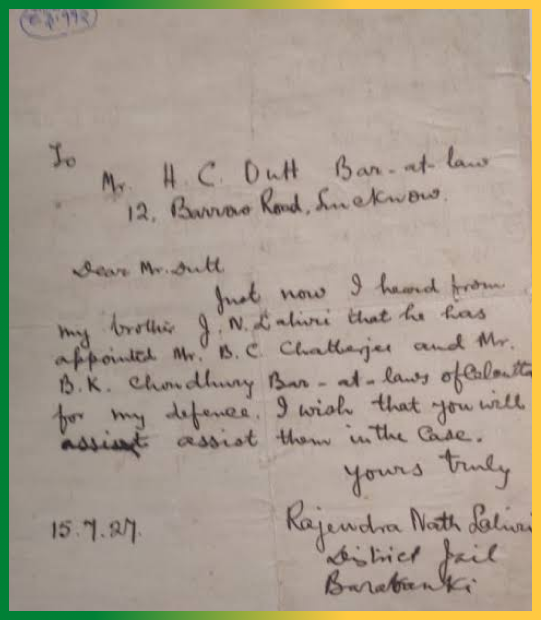 To
Mr. H. C. Dutt Bar-at-law
12, Barrow Road, Lucknow.
Dear Mr. Dutt
Just now I heard from
my brother J. N. Lahiri that he has
appointed Mr. B. C. Chatterjee and Mr.
B. K. Choudhury Bar-at-laws of Calcutta
for my defence. I wish that you will
assist them in the Case.
yours truly
Rajendra Nath Lahiri
15.7.27.
District Jail
Barabanki